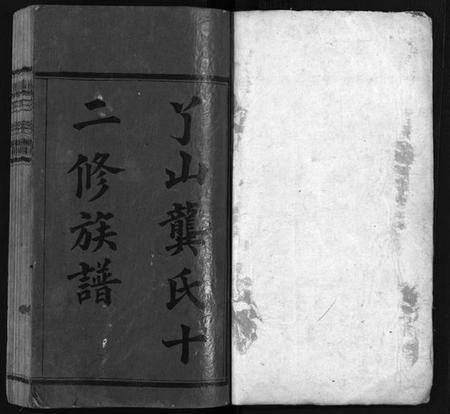 丫山龔氏十
二修族譜